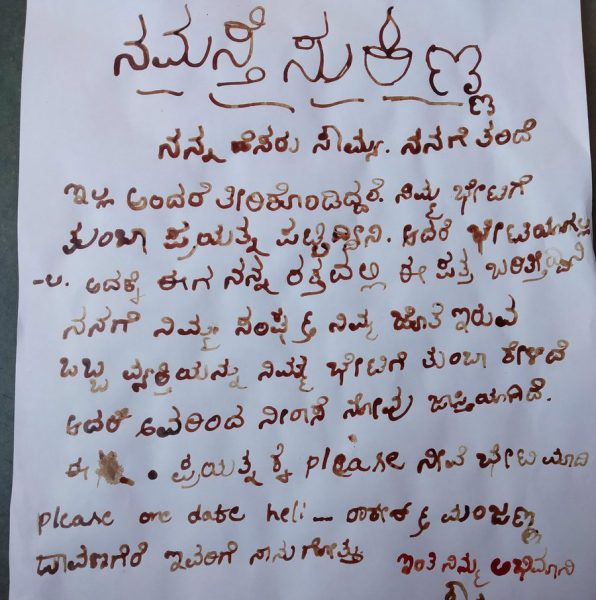 ನಮಸ್ತೆ ಸುಕಿಣ್ಣ
ನನ್ನ ಹೆಸರು ಸೌಮ್ಯ. ನನಗೆ ತಂದೆ
ಇಲ್ಲ ಅಂದರೆ ತೀರಿಕೊಂಡಿದ್ದಾರೆ. ನಿಮ್ಮ ಭೇಟಿಗೆ
ತುಂಬಾ ಪ್ರಯತ್ನ ಪಟ್ಟಿದ್ದೀನಿ. ಆದರೆ ಭೇಟಿಯಾಗಲ್ಲ
-ಲ. ಅದಕ್ಕೆ ಈಗ ನನ್ನ ರಕ್ತದಲ್ಲಿ ಈ ಪತ್ರ ಬರಿತ್ತಿದ್ದೀನಿ
ನನಗೆ ನಿಮ್ಮ & ನಿಮ್ಮ ಜೊತೆ ಇರುವ
ಒಬ್ಬ ವ್ಯಕ್ತಿಯನ್ನು ನಿಮ್ಮ ಭೇಟಿಗೆ ತುಂಬಾ ಕೇಳಿದೆ
ಆದರೆ ಅವರಿಂದ ನೀರಾಸೆ ನೋವು ಜಾಸ್ತಿಯಾಗಿದೆ.
ಈ . ಪ್ರಯತ್ನ ಕ್ಕೆ please ನೀವೆ ಭೇಟಿ ಮಾಡಿ
please one date heli — ರಾಕೇಶ್ & ಮಂಜಣ್ಣ
ದಾವಣಗೆರೆ ಇವರಿಗೆ ನಾನು ಗೋತ್ತು ಇಂತಿ ನಿಮ್ಮ ಅಭಿಮಾನಿ